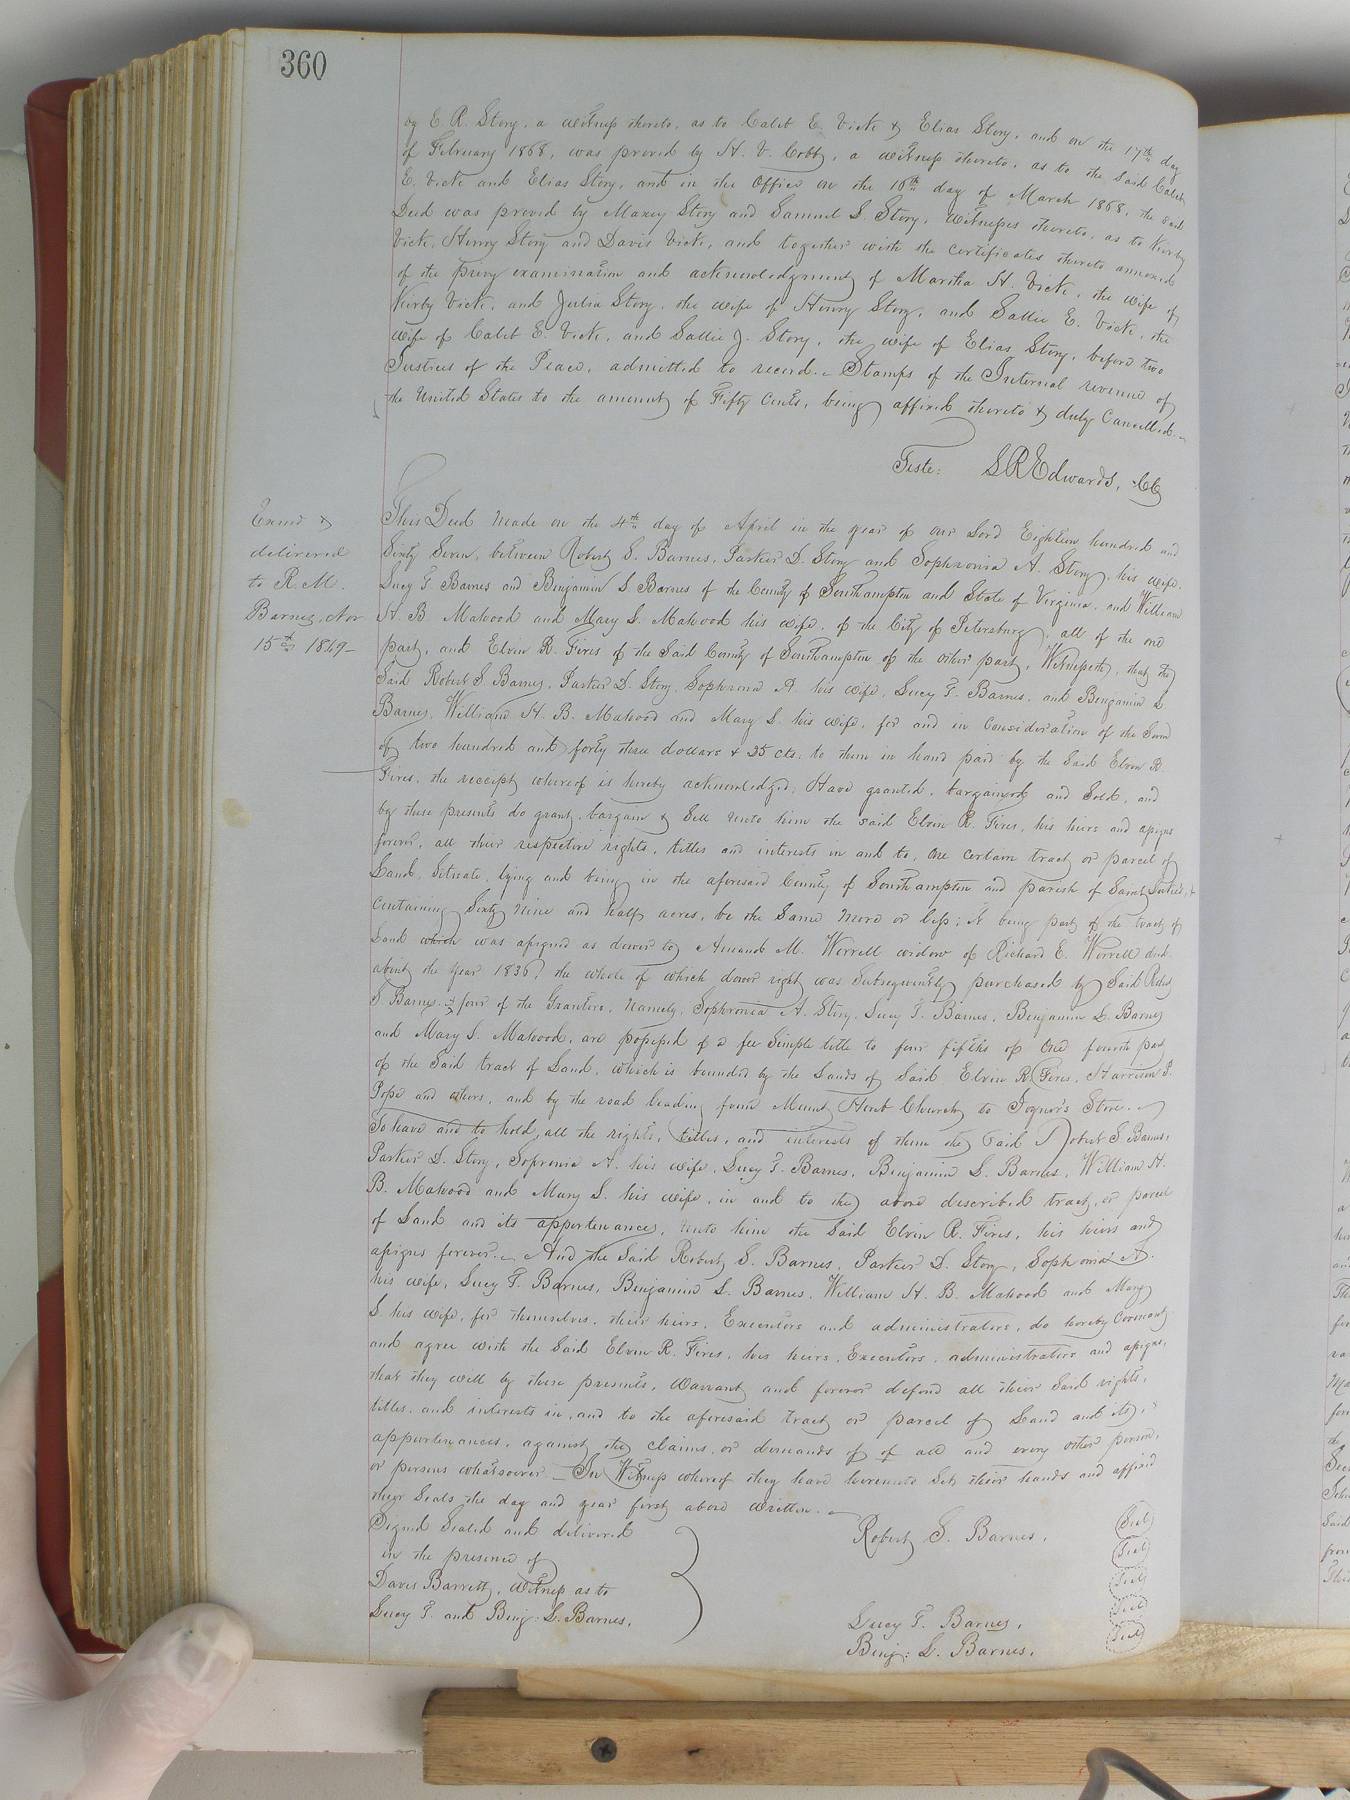 360
by E. R. Story, a witness thereto, as to Caleb E. Vick & Elias Story, and on the 17th day
of February 1868, was proved by H. V. Cobb, a witness thereto, as to the said Caleb
E. Vick and Elias Story, and in the Office on the 16th day of March 1868, the said
Deed was proved by Maxey Story and Samuel S. Story, witnesses thereto, as to Kirby
Vick, Henry Story and Davis Vick, and together with the certificates thereto annexed
of the privy examination and acknowledgment of Martha H. Vick, the wife of
Kirby Vick, and Julia Story, the wife of Henry Story, and Sallie E. Vick, the
wife of Caleb E. Vick, and Sallie J. Story, the wife of Elias Story, before two
Justices of the Peace, admitted to record. Stamps of the Internal revenue of
the United States to the amount of Fifty Cents, being affixed thereto & duly Cancelled.
Teste: L R Edwards, CC
Examd &
delivered
to R. M.
Barnes, Nov
15th 1869
This Deed made on the 4th day of April in the year of our Lord Eighteen hundred and
Sixty Seven, between Robert S. Barnes, Parker D. Story and Sophronia A. Story, his wife,
Lucy T. Barnes and Benjamin L Barnes of the County of Southampton and State of Virginia, and William
H. B Malwood and Mary S. Malwood his wife, of the City of Petersburg; all of the one
part, and Elvin R. Fires of the said County of Southampton of the other part, Witnesseth, that the
Said Robert S. Barnes, Parker D. Story, Sophronia A. his wife, Lucy T. Barnes, and Benjamin L.
Barnes, William H. B. Malwood and Mary S. his wife, for and in Consideration of the Sum
of two hundred and forty three dollars & 25 cts. to them in hand paid by the said Elvin R.
Fires, the receipt whereof is hereby acknowledged, Have granted, bargained and Sold, and
by these presents do grant, bargain & Sell unto him the said Elvin R. Fires, his heirs and assigns
forever, all their respective rights, titles and interests in and to, one certain tract or parcel of
Land, Situate, lying and being in the aforesaid County of Southampton and parish of Saint Lukes,
Containing Sixty Nine and half acres, be the Same more or less; It being part of the tract of
Land which was assigned as dower to Amanda M. Worrell widow of Richard E. Worrell decd.
about the year 1836, the whole of which dower right was Subsequently purchased by Said Robert
S Barnes. & four of the Grantors, Namely, Sophronia A. Story, Lucy T. Barnes, Benjamin L. Barnes
and Mary S. Malwood, are possessed of a fee Simple title to four fifths of One fourth part
of the Said tract of Land, which is bounded by the Lands of Said Elvin R. Fires, Harrison P.
Pope and others, and by the road leading from Mount Horeb Church to Joyner's Store.
To have and to hold, all the rights, titles, and interests of them the Said Robert S. Barnes,
Parker D. Story, Sopronia A. his wife, Lucy T. Barnes, Benjamin L. Barnes, William H.
B. Malwood and Mary S. his wife, in and to the above described tract, or parcel
of Land and its appertenances, unto him the Said Elvin R. Fires, his heirs and
assigns forever. And the Said Robert S. Barnes, Parker D. Story, Sophronia A.
his wife, Lucy T. Barnes, Benjamin L. Barnes, William H. B. Malwood and Mary
S his wife, for themselves, their heirs, Executors and administrators, do hereby Covenant
and agree with the Said Elvin R. Fires, his heirs, Executors, administrators and assigns,
that they will by these presents, warrant and forever defend all their Said rights,
titles, and interests in, and to the aforesaid tract or parcel of Land and its,
appertenances, against the claims, or demands of of all and every other person,
or persons whatsoever. In Witness whereof they have hereunto Set their hands and affixed
their Seals the day and year first above written.
Signed Sealed and delivered
in the presence of
Davis Barrett, witness as to
Lucy T. and Benj: L. Barnes.
Robert S. Barnes. Seal
Seal
Seal
Lucy T. Barnes. Seal
Benj: L. Barnes. Seal